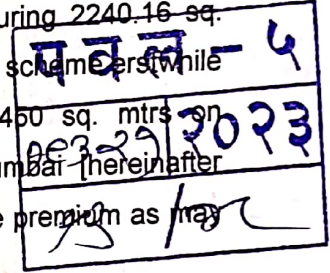 uring 2240.16 sq.
scheme erstwhile
450 sq. mtrs on
umbai [hereinafter
e premium as may
पवल - ५
२०२३